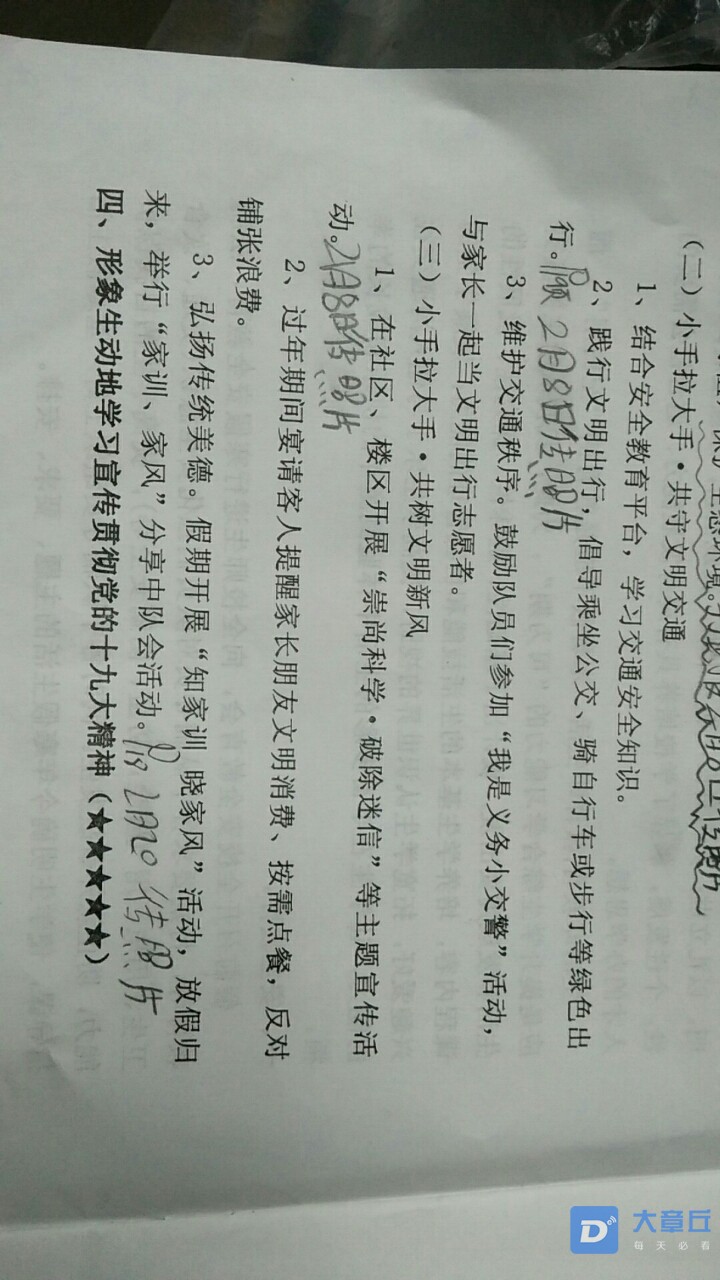 生态环境。
（二）小手拉大手·共守文明交通
1、结合安全教育平台，学习交通安全知识。
2、践行文明出行，倡导乘坐公交、骑自行车或步行等绿色出
行。 2月8日传照片
3、维护交通秩序。鼓励队员们参加“我是义务小交警”活动，
与家长一起当文明出行志愿者。
（三）小手拉大手·共树文明新风
1、在社区、楼区开展“崇尚科学·破除迷信”等主题宣传活
动。2月8日传照片
2、过年期间宴请客人提醒家长朋友文明消费、按需点餐，反对
铺张浪费。
3、弘扬传统美德。假期开展“知家训 晓家风”活动，放假归
来，举行“家训、家风”分享中队会活动。 2月20传照片
四、形象生动地学习宣传贯彻党的十九大精神（★★★★★）
大章丘
每天必看